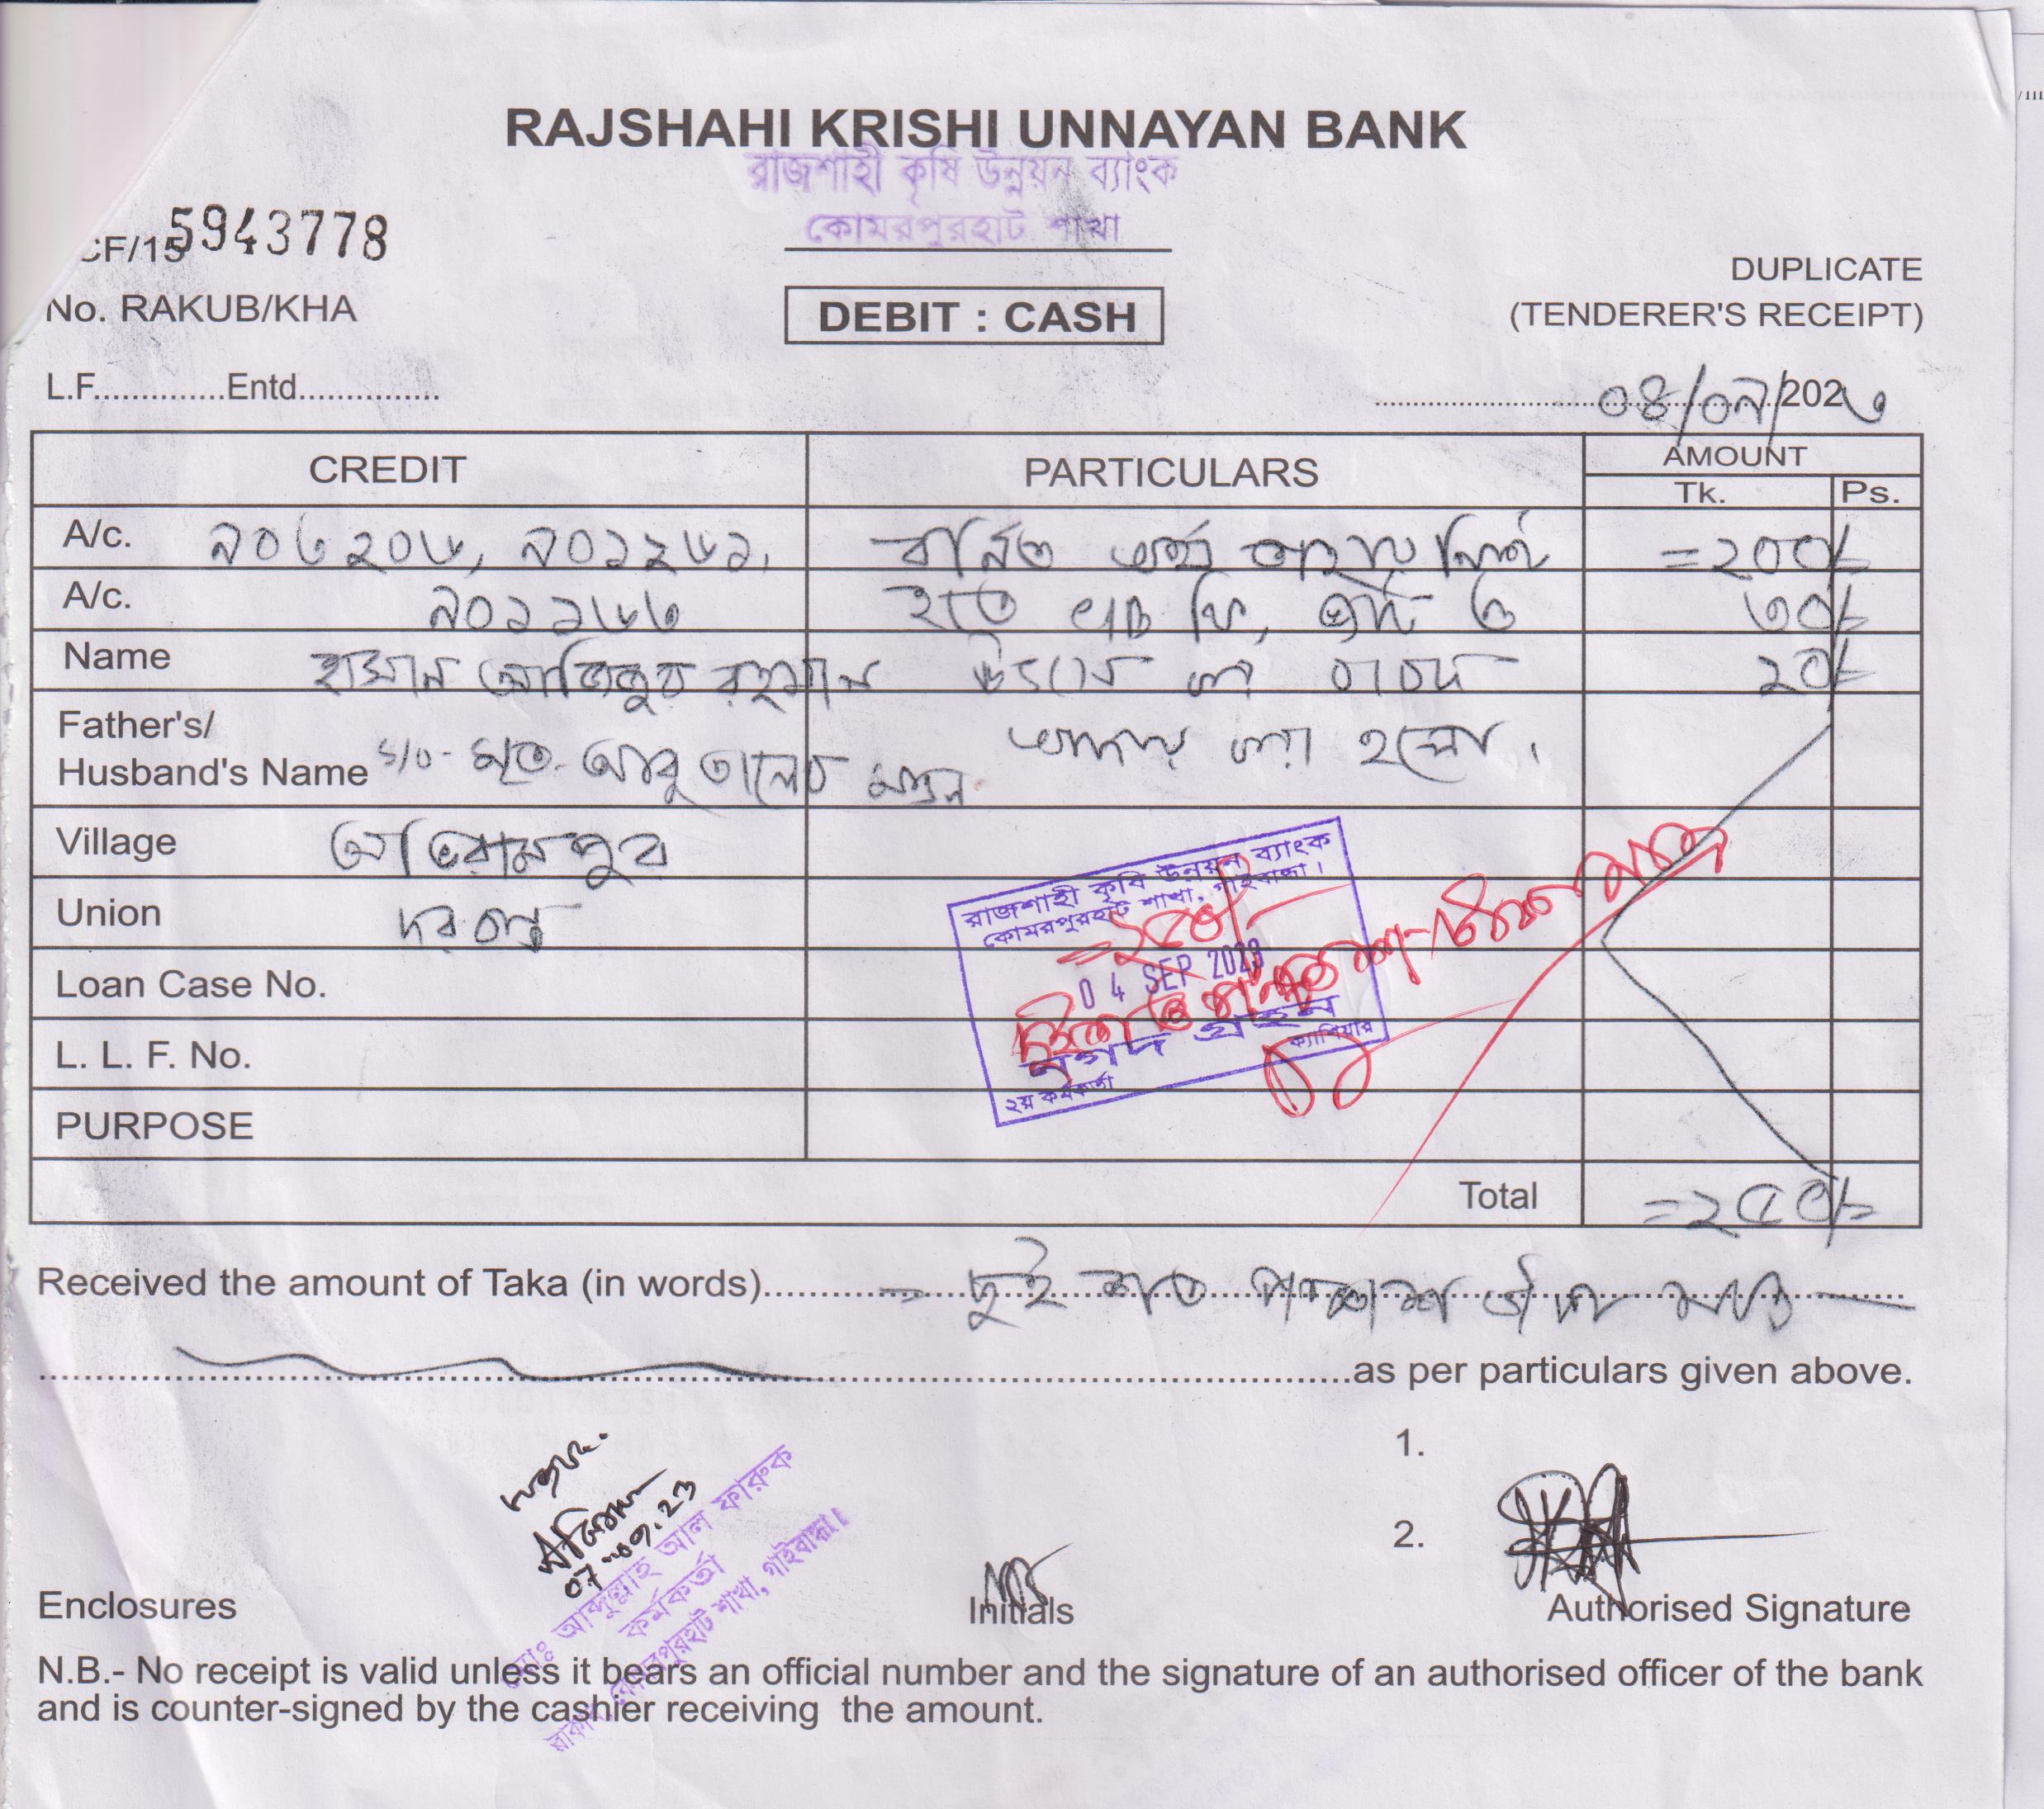 RAJSHAHI KRISHI UNNAYAN BANK
রাজশাহী কৃষি উন্নয়ন ব্যাংক
কোমরপুরহাট শাখা
CF/15 5943778
No. RAKUB/KHA
DEBIT : CASH
DUPLICATE
(TENDERER'S RECEIPT)
L.F..............Entd...............
০৪/০৯/202৩
CREDIT PARTICULARS AMOUNT
Tk. Ps.
A/c. ৯০৩২০৬, ৯০১২৬১, বর্নিত =২০০/-
A/c. ৯০১১৬৩ হতে ফি, ভ্যাট ও ৩০/-
Name হাসান আজিজুর রহমান উৎসে কর বাবদ ২০/-
Father's/
Husband's Name S/o- মৃত- আবু তালেব মন্ডল আদায় করা হলো।
Village অভিরামপুর
Union
রাজশাহী কৃষি উন্নয়ন ব্যাংক
কোমরপুরহাট শাখা, গাইবান্ধা।
=২৫০/-
04 SEP 2023
নগদ গ্রহন
২য় কর্মকর্তা ক্যাশিয়ার
Loan Case No.
L. L. F. No.
PURPOSE
Total =২৫০/-
Received the amount of Taka (in words) = দুই শত পঞ্চাশ টাকা মাত্র
as per particulars given above.
1.
2.
07-09.23
মোঃ আব্দুল্লাহ আল ফারুক
কর্মকর্তা
রাকাব, কোমরপুরহাট শাখা, গাইবান্ধা।
Enclosures Initials Authorised Signature
N.B.- No receipt is valid unless it bears an official number and the signature of an authorised officer of the bank
and is counter-signed by the cashier receiving the amount.